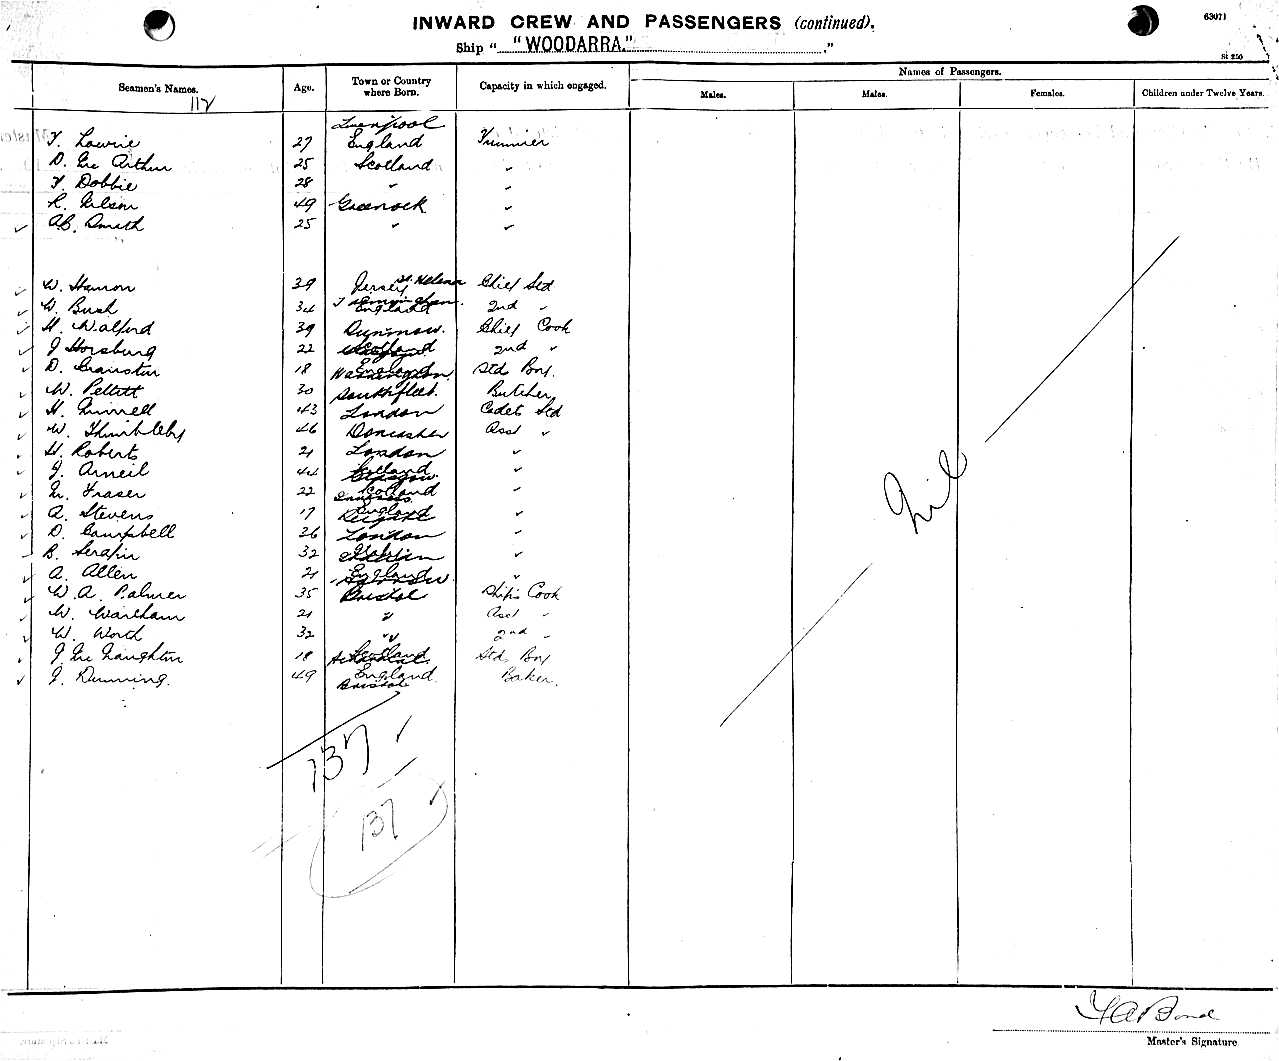 INWARD CREW AND PASSENGERS (continued).
63071
Ship " "WOODARRA." ."
St 250
Seamen's Names. Age. Town or Country where Born. Capacity in which engaged. Names of Passengers.
Males. Males. Females. Children under Twelve Years.
117
Liverpool
Lowrie 27 England Trimmer
D. McArthur 25 Scotland "
Dobbie 28 " "
Nelson 49 Greenock "
Smith 25 " "
W. Hamon 39 Jersey St. Helena Chief Std
W. Bush 34 England 2nd "
H. Walford 39 Dunmow. Chief Cook
J Horsburg 22 Scotland 2nd "
D. Cranston 18 England Std Boy.
W. Pellitt 30 Southfleet. Butcher
H. Gunnell 43 London Cadet Std
W. Thimbleby 46 Doncaster Asst "
H. Roberts 21 London "
J. Arneil 44 Scotland Glasgow. "
Fraser 22 Scotland "
A. Stevens 17 England "
D. Campbell 26 London "
R. Serafin 32 "
A. Allen 21 England "
W. A. Palmer 35 Bristol Ship's Cook
W. Wareham 21 " Asst "
W. Word 32 " 2nd "
J. McNaughton 18 Scotland Std, Boy
J. Dunning. 49 England Bristol Baker.
Nil
137
137
Bond
Master's Signature